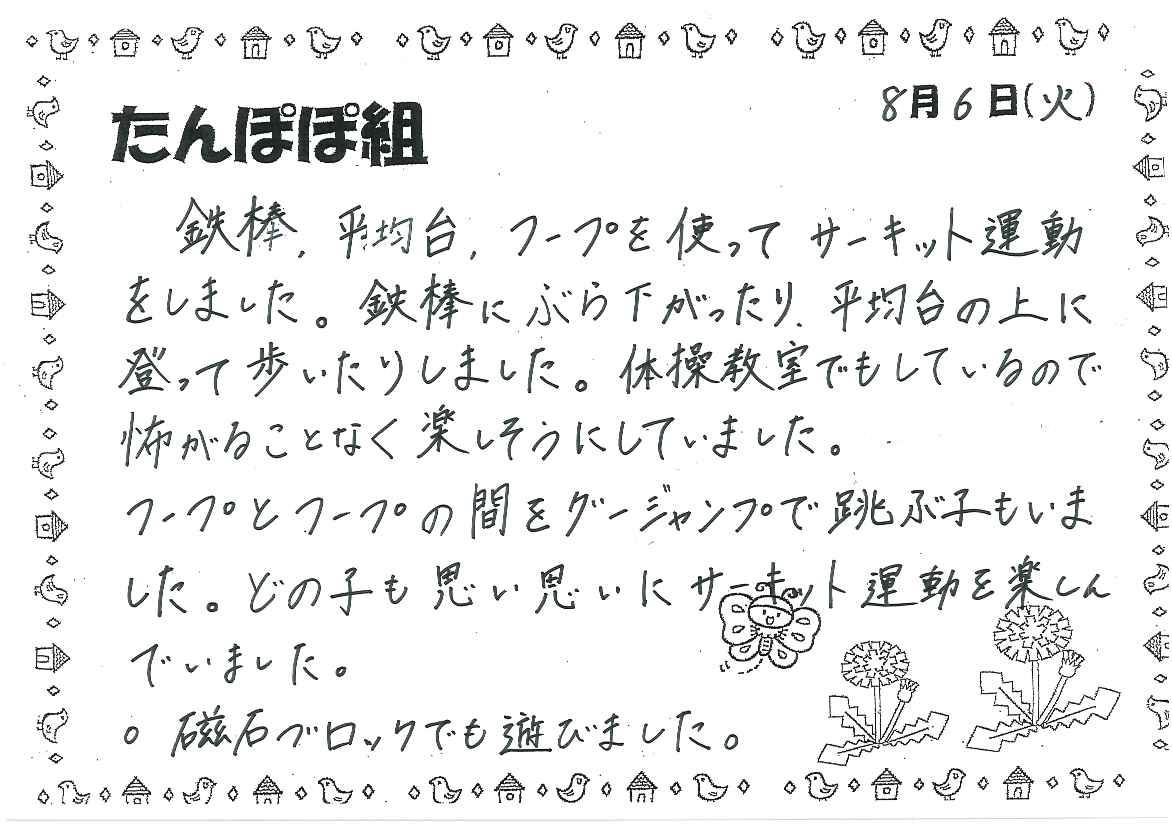 8月6日(火)
たんぽぽ組
鉄棒、平均台、フープを使ってサーキット運動
をしました。鉄棒にぶら下がったり、平均台の上に
登って歩いたりしました。体操教室でもしているので
怖がることなく楽しそうにしていました。
フープとフープの間をグージャンプで跳ぶ子もいま
した。どの子も思い思いにサーキット運動を楽しん
でいました。
○ 磁石ブロックでも遊びました。